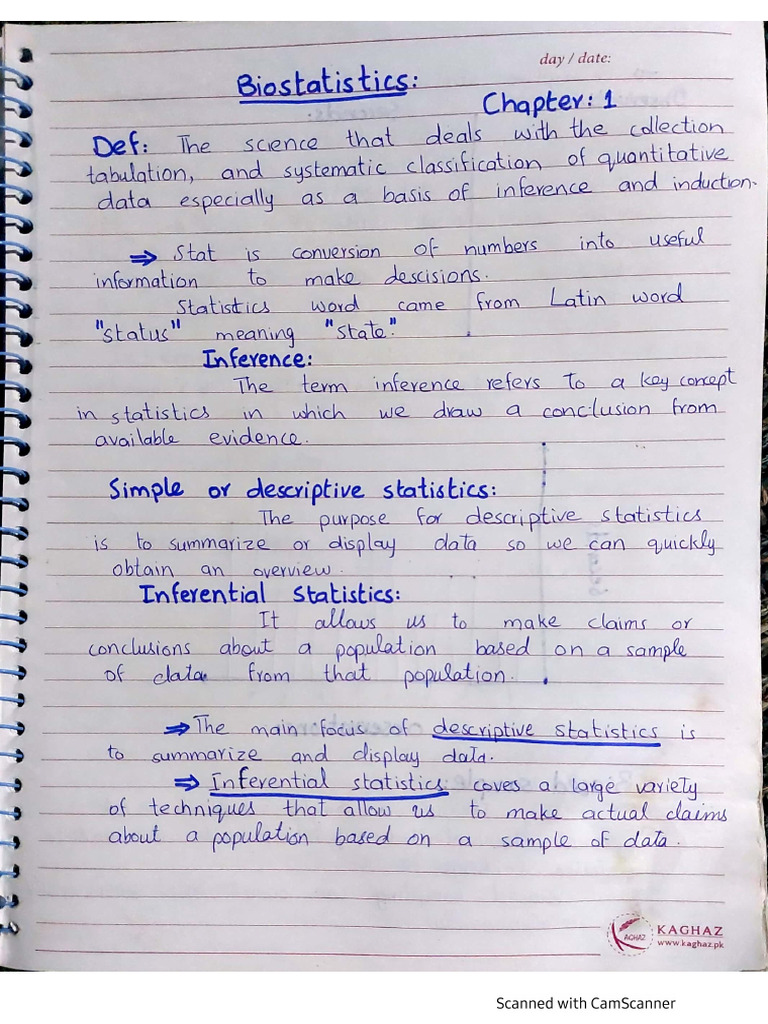 day / date:
Biostatistics:
Chapter: 1
Def: The science that deals with the collection
tabulation, and systematic classification of quantitative
data especially as a basis of inference and induction.
⇒ Stat is conversion of numbers into useful
information to make descisions.
Statistics word came from Latin word
"status" meaning "state."
Inference:
The term inference refers to a key concept
in statistics in which we draw a conclusion from
available evidence.
Simple or descriptive statistics:
The purpose for descriptive statistics
is to summarize or display data so we can quickly
obtain an overview.
Inferential Statistics:
It allows us to make claims or
conclusions about a population based on a sample
of data from that population.
⇒ The main focus of descriptive statistics is
to summarize and display data.
⇒ Inferential statistics coves a large variety
of techniques that allow us to make actual claims
about a population based on a sample of data.
KAGHAZ
www.kaghaz.pk
Scanned with CamScanner